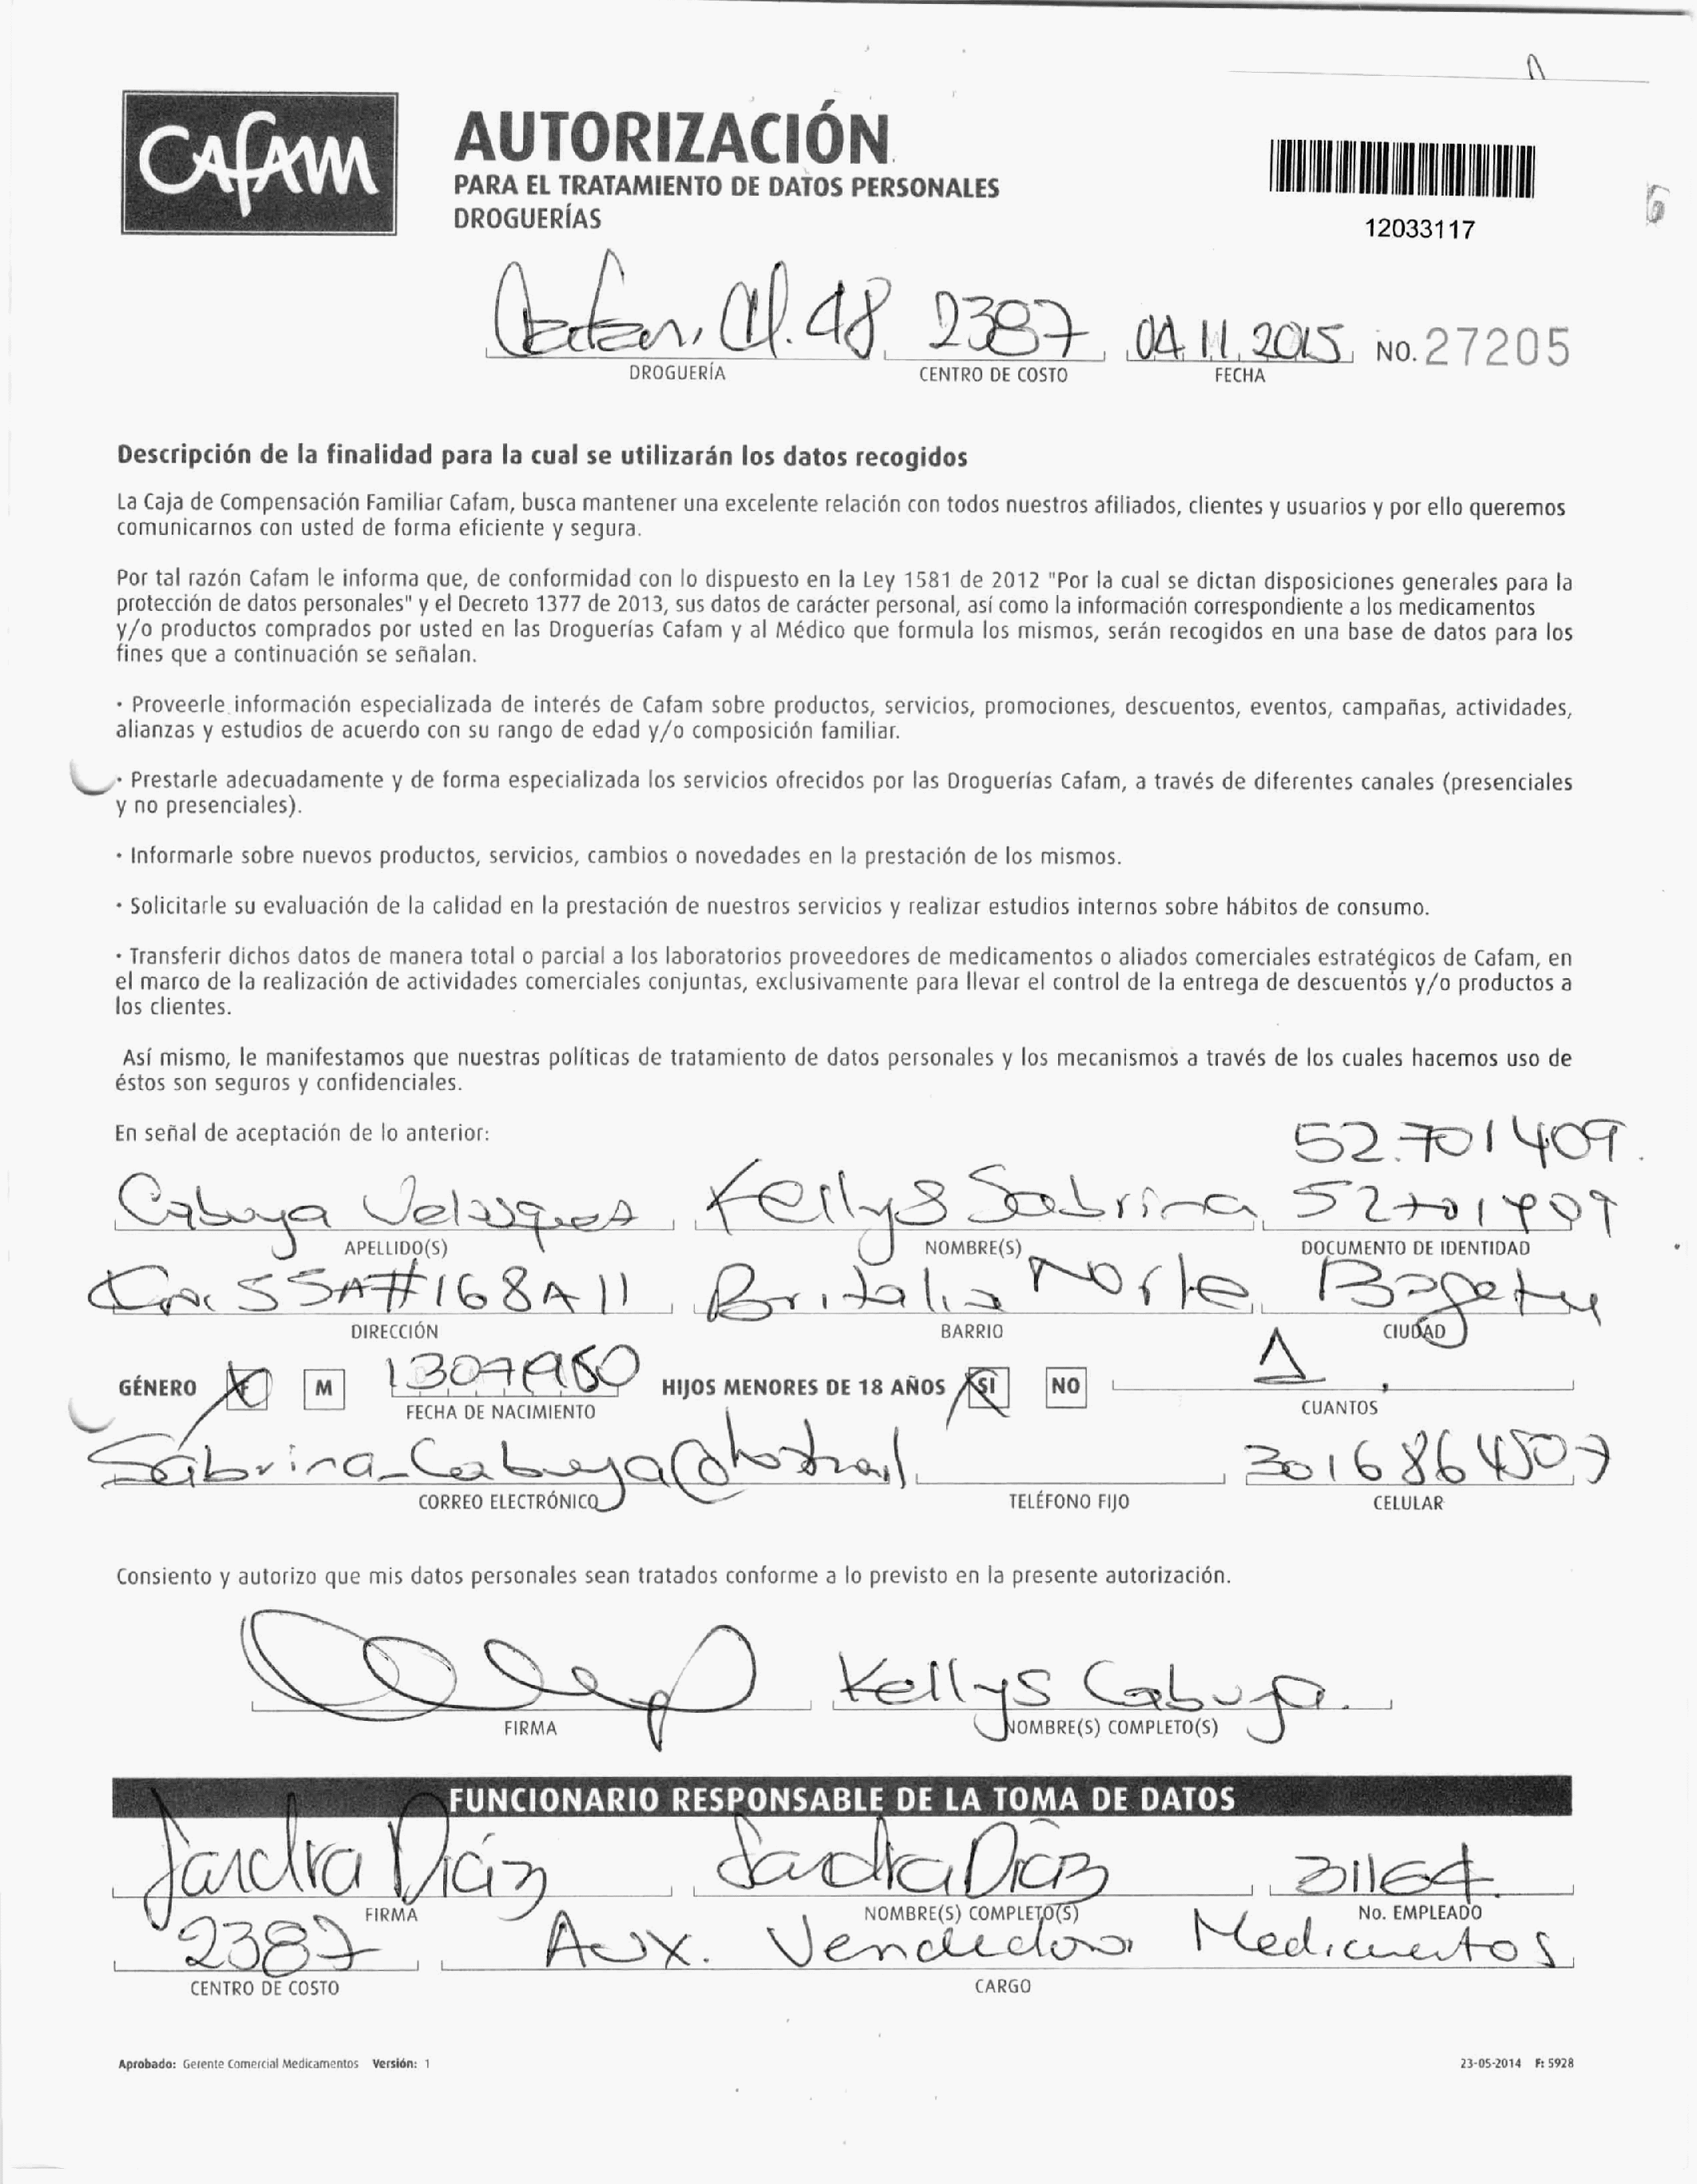 CAFAM
AUTORIZACIÓN
PARA EL TRATAMIENTO DE DATOS PERSONALES
DROGUERÍAS
12033117
Cafam Cll. 48 2387 04.11.2015 NO. 27205
DROGUERÍA CENTRO DE COSTO FECHA
Descripción de la finalidad para la cual se utilizarán los datos recogidos
La Caja de Compensación Familiar Cafam, busca mantener una excelente relación con todos nuestros afiliados, clientes y usuarios y por ello queremos
comunicarnos con usted de forma eficiente y segura.
Por tal razón Cafam le informa que, de conformidad con lo dispuesto en la Ley 1581 de 2012 "Por la cual se dictan disposiciones generales para la
protección de datos personales" y el Decreto 1377 de 2013, sus datos de carácter personal, así como la información correspondiente a los medicamentos
y/o productos comprados por usted en las Droguerías Cafam y al Médico que formula los mismos, serán recogidos en una base de datos para los
fines que a continuación se señalan.
· Proveerle información especializada de interés de Cafam sobre productos, servicios, promociones, descuentos, eventos, campañas, actividades,
alianzas y estudios de acuerdo con su rango de edad y/o composición familiar.
· Prestarle adecuadamente y de forma especializada los servicios ofrecidos por las Droguerías Cafam, a través de diferentes canales (presenciales
y no presenciales).
· Informarle sobre nuevos productos, servicios, cambios o novedades en la prestación de los mismos.
· Solicitarle su evaluación de la calidad en la prestación de nuestros servicios y realizar estudios internos sobre hábitos de consumo.
· Transferir dichos datos de manera total o parcial a los laboratorios proveedores de medicamentos o aliados comerciales estratégicos de Cafam, en
el marco de la realización de actividades comerciales conjuntas, exclusivamente para llevar el control de la entrega de descuentos y/o productos a
los clientes.
Así mismo, le manifestamos que nuestras políticas de tratamiento de datos personales y los mecanismos a través de los cuales hacemos uso de
éstos son seguros y confidenciales.
En señal de aceptación de lo anterior:
52.701409.
Cabuya Velasquez Kellys Sabrina 52701409
APELLIDO(S) NOMBRE(S) DOCUMENTO DE IDENTIDAD
Cra 55A#168A11 Britalia Norte Bogota
DIRECCIÓN BARRIO CIUDAD
GÉNERO F M 13071980 HIJOS MENORES DE 18 AÑOS SI NO 1
FECHA DE NACIMIENTO CUANTOS
Sabrina_Cabuya@hotmail 3016864507
CORREO ELECTRÓNICO TELÉFONO FIJO CELULAR
Consiento y autorizo que mis datos personales sean tratados conforme a lo previsto en la presente autorización.
Kellys Cabuya
FIRMA NOMBRE(S) COMPLETO(S)
FUNCIONARIO RESPONSABLE DE LA TOMA DE DATOS
Sandra Díaz Sandra Díaz 31164
FIRMA NOMBRE(S) COMPLETO(S) No. EMPLEADO
2387 Aux. Vendedor Medicamentos
CENTRO DE COSTO CARGO
Aprobado: Gerente Comercial Medicamentos Versión: 1 23-05-2014 F: 5928